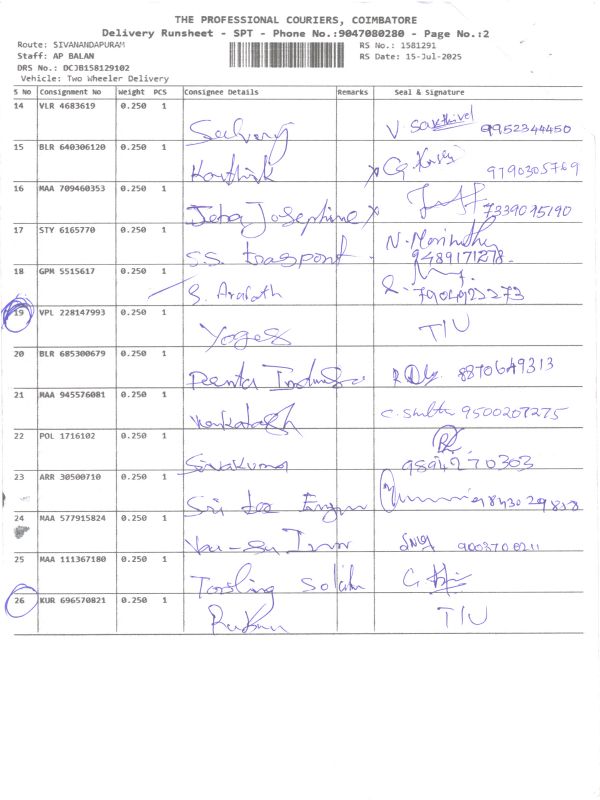 THE PROFESSIONAL COURIERS, COIMBATORE
Delivery Runsheet - SPT - Phone No.:9047080280 - Page No.:2
Route: SIVANANDAPURAM RS No.: 1581291
Staff: AP BALAN RS Date: 15-Jul-2025
DRS No.: DCJB158129102
Vehicle: Two Wheeler Delivery
S No Consignment No Weight PCS Consignee Details Remarks Seal & Signature
14 VLR 4683619 0.250 1 V Sakthivel 9952344450
15 BLR 640306120 0.250 1 Karthik 9190305769
16 MAA 709460353 0.250 1 Jeba Josephine 7339095190
17 STY 6165770 0.250 1 S.S. traspont 9489171278
18 GPM 5515617 0.250 1 S. Arafath 7904923273
19 VPL 228147993 0.250 1 Yoges TIU
20 BLR 685300679 0.250 1 8870649313
21 MAA 945576081 0.250 1 Venkatash 9500207275
22 POL 1716102 0.250 1 Sivakumar 9894270303
23 ARR 30500710 0.250 1 Sri 9843029818
24 MAA 577915824 0.250 1 9003700211
25 MAA 111367180 0.250 1
26 KUR 696570821 0.250 1 TIU